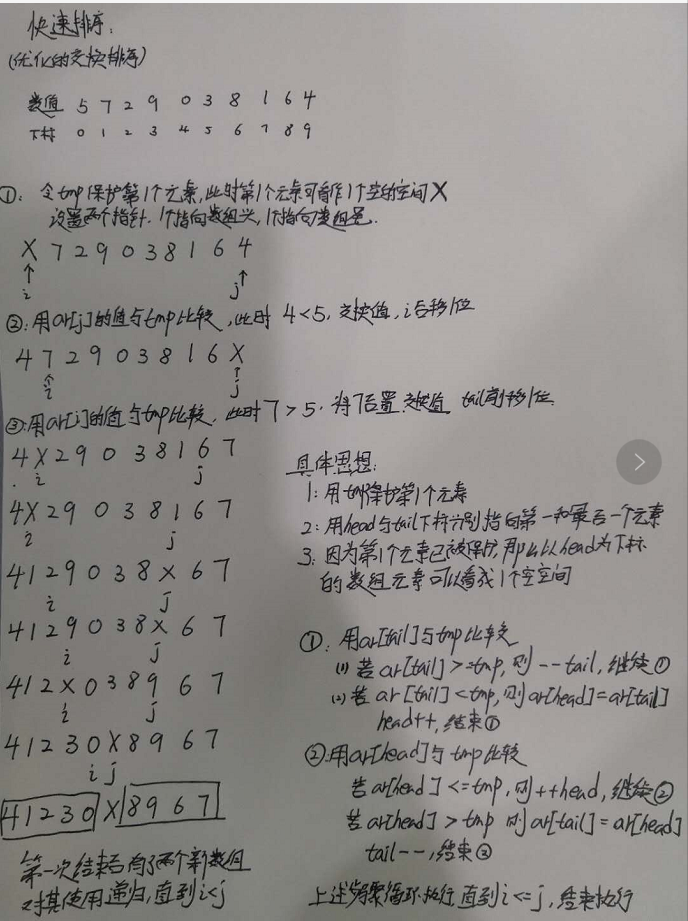 快速排序:
(优化的交换排序)
数值 5 7 2 9 0 3 8 1 6 4
下标 0 1 2 3 4 5 6 7 8 9
①: 令tmp保护第1个元素,此时第1个元素可看作1个空的空间X
设置两个指针.1个指向数组头,1个指向数组尾.
X 7 2 9 0 3 8 1 6 4
i j
②:用ar[j]的值与tmp比较,此时 4<5,交换值,i后移1位
4 7 2 9 0 3 8 1 6 X
i j
③:用ar[i]的值与tmp比较,此时7>5,将7后置 交换值 tail前移1位
4 X 2 9 0 3 8 1 6 7
i j
4 X 2 9 0 3 8 1 6 7
i j
4 1 2 9 0 3 8 X 6 7
i j
4 1 2 9 0 3 8 X 6 7
i j
4 1 2 X 0 3 8 9 6 7
i j
4 1 2 3 0 X 8 9 6 7
i j
4 1 2 3 0 X 8 9 6 7
第一次结束后有了两个新数组
对其使用递归,直到i<j
具体思想:
1: 用tmp保护第1个元素
2: 用head与tail下标分别指向第一和最后一个元素
3. 因为第1个元素已被保护,那么以head为下标
的数组元素可以看成1个空空间
①: 用ar[tail]与tmp比较
(1) 若ar[tail]>=tmp,则--tail,继续①
(2) 若ar[tail]<tmp,则ar[head]=ar[tail]
head++,结束①
②:用ar[head]与tmp比较
若ar[head]<=tmp,则++head,继续②
若ar[head]>tmp 则ar[tail]=ar[head]
tail--,结束②
上述步骤循环执行 直到i<=j,结束执行